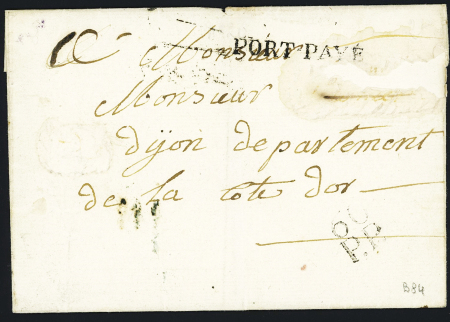 A Monsieur PORT PAYÉ
Monsieur
dijon departement
de La Cote dor
P.P
B84